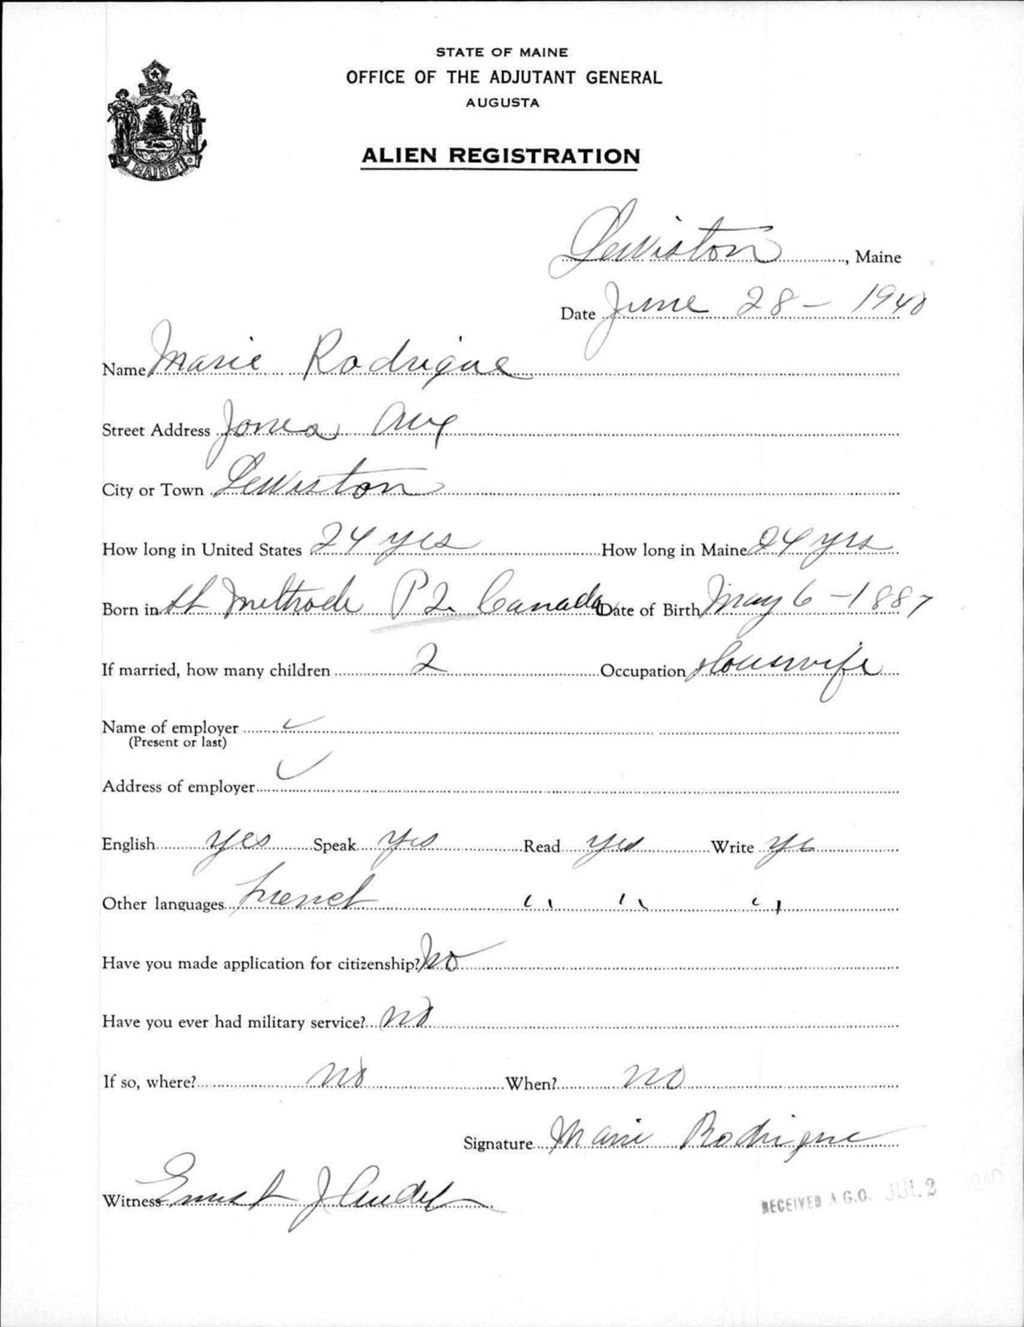 STATE OF MAINE
OFFICE OF THE ADJUTANT GENERAL
AUGUSTA
ALIEN REGISTRATION
MAINE
Lewiston, Maine
Date June 28 - 1940
Name Marie Rodrigue
Street Address Jones Ave
City or Town Lewiston
How long in United States 24 yrs How long in Maine 24 yrs
Born in St Methode P2 Canada Date of Birth May 6 - 1887
If married, how many children 2 Occupation Housewife
Name of employer ✓
(Present or last)
Address of employer ✓
English yes Speak yes Read yes Write yes
Other languages French " " "
Have you made application for citizenship? No
Have you ever had military service? no
If so, where? no When? no
Signature Marie Rodrigue
Witness Ernest J
RECEIVED A.G.O. JUL 2 1940